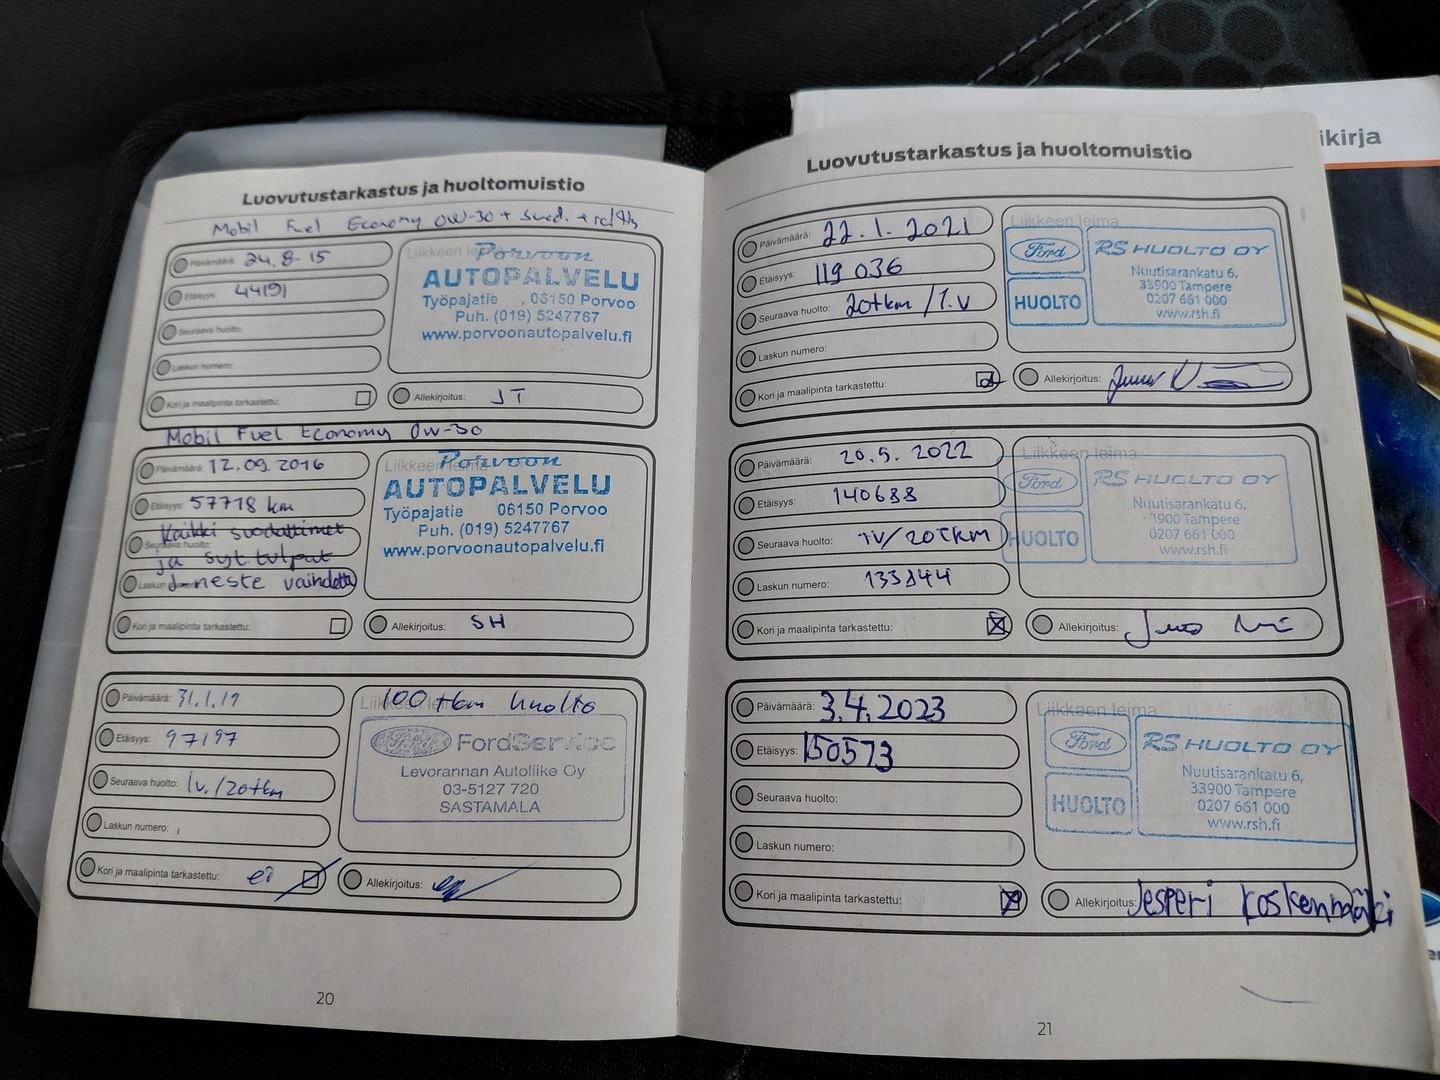 Luovutustarkastus ja huoltomuistio
Mobil Fuel Economy 0W-30 + suod. +
Päivämäärä: 24.8-15
Etäisyys: 44191
Seuraava huolto:
Laskun numero:
Kori ja maalipinta tarkastettu:
Liikkeen leima
Porvoon
AUTOPALVELU
Työpajatie , 06150 Porvoo
Puh. (019) 5247767
www.porvoonautopalvelu.fi
Allekirjoitus: JT
Mobil Fuel Economy 0W-30
Päivämäärä: 12.09.2016
Etäisyys: 57718 km
Kaikki suodattimet
Seuraava huolto:
ja syt tulpat
Laskun J-neste vaihdettu
Kori ja maalipinta tarkastettu:
Liikkeen leima
Porvoon
AUTOPALVELU
Työpajatie 06150 Porvoo
Puh. (019) 5247767
www.porvoonautopalvelu.fi
Allekirjoitus: SH
Päivämäärä: 31.1.19
Etäisyys: 97197
Seuraava huolto: 1v./20tkm
Laskun numero:
Kori ja maalipinta tarkastettu: ei
Liikkeen leima
100 tkm huolto
Ford FordService
Levorannan Autoliike Oy
03-5127 720
SASTAMALA
Allekirjoitus:
20
Luovutustarkastus ja huoltomuistio
Päivämäärä: 22.1.2021
Etäisyys: 119 036
Seuraava huolto: 20tkm/1.v
Laskun numero:
Kori ja maalipinta tarkastettu:
Liikkeen leima
Ford RS HUOLTO OY
HUOLTO
Nuutisarankatu 6,
33900 Tampere
0207 661 000
www.rsh.fi
Allekirjoitus:
Päivämäärä: 20.5.2022
Etäisyys: 140688
Seuraava huolto: 1V/20Tkm
Laskun numero: 135144
Kori ja maalipinta tarkastettu:
Liikkeen leima
Ford RS HUOLTO OY
HUOLTO
Nuutisarankatu 6,
3900 Tampere
0207 661 000
www.rsh.fi
Allekirjoitus:
Päivämäärä: 3.4.2023
Etäisyys: 150573
Seuraava huolto:
Laskun numero:
Kori ja maalipinta tarkastettu:
Liikkeen leima
Ford RS HUOLTO OY
HUOLTO
Nuutisarankatu 6,
33900 Tampere
0207 661 000
www.rsh.fi
Allekirjoitus: Jesperi Koskenmäki
21
ikirja